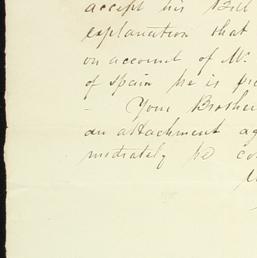 accept his Bill
explanation that
on account of Mr.
of Spain he is pre
- Your Brother
an attachment ag
mediately be co